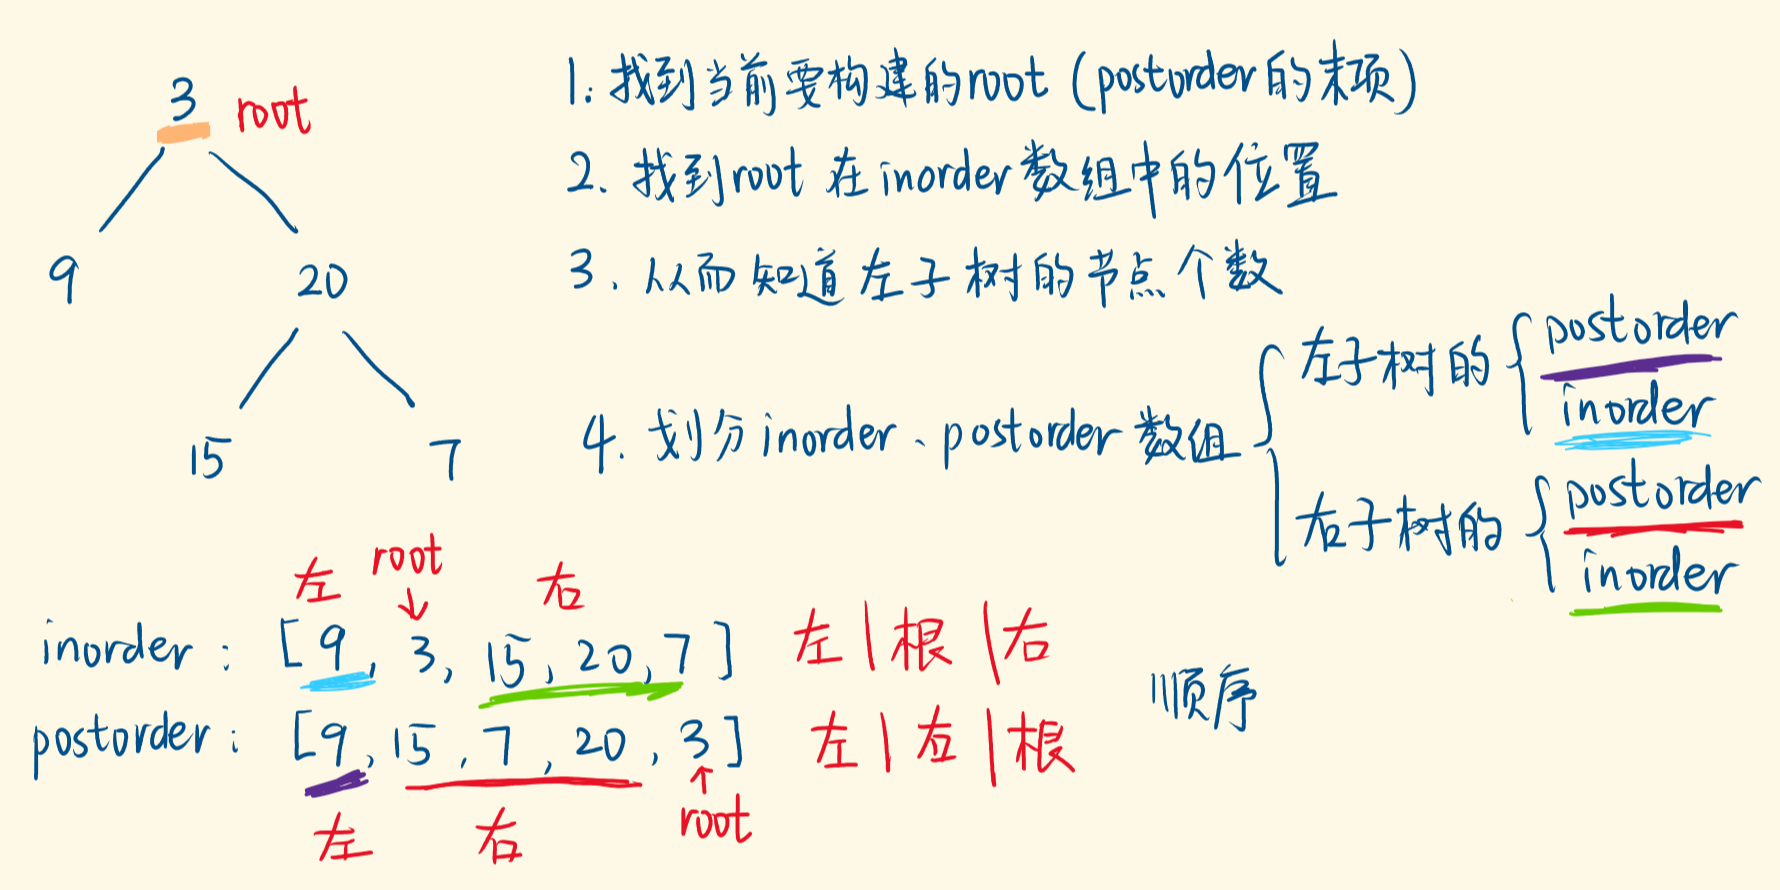 3 root
9 20
15 7
1. 找到当前要构建的root (postorder的末项)
2. 找到root 在inorder数组中的位置
3. 从而知道左子树的节点个数
4. 划分inorder、postorder数组
左子树的
postorder
inorder
右子树的
postorder
inorder
左 root 右
↓
inorder: [9, 3, 15, 20, 7] 左|根|右
顺序
postorder: [9, 15, 7, 20, 3] 左|右|根
↑
左 右 root